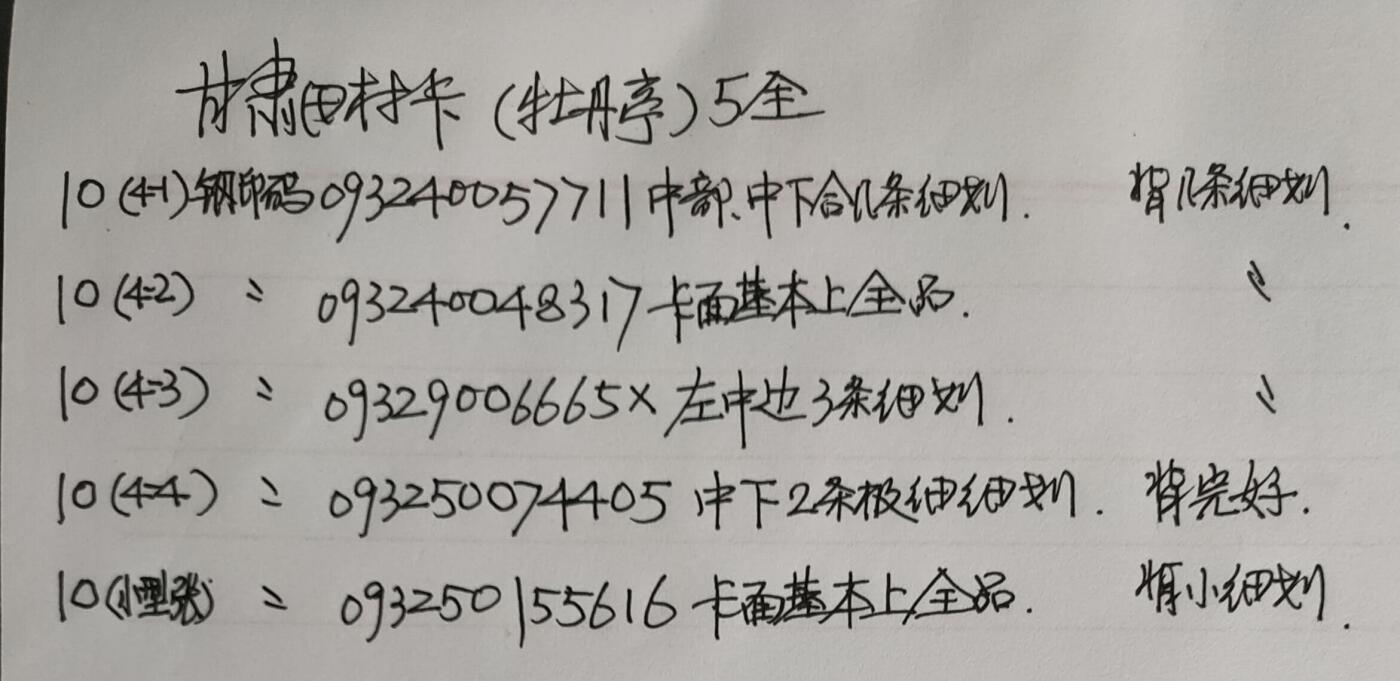 甘肃田村卡(牡丹亭)5全
10(4-1)钢印码093240057711中部、中下合几条细划. 背几条细划.
10(4-2) 〃 093240048317卡面基本上全品. 〃
10(4-3) 〃 09329006665X左中边3条细划. 〃
10(4-4) 〃 093250074405中下2条极细细划. 背完好.
10(小型张) 〃 093250155616卡面基本上全品. 背小细划.